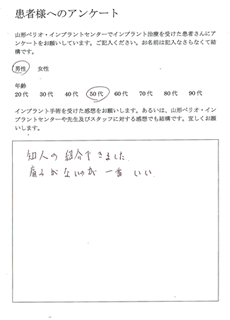 患者様へのアンケート
山形ペリオ・インプラントセンターでインプラント治療を受けた患者さんにア
ンケートをお願いしています。ご記入ください。お名前は記入なさらなくて結
構です。
男性 女性
年齢
20代 30代 40代 50代 60代 70代 80代 90代
インプラント手術を受けた感想をお願いします。あるいは、山形ペリオ・イン
プラントセンターや先生及びスタッフに対する感想でも結構です。宜しくお願
いします。
知人の紹介できました
痛みがないのが 一番 いい